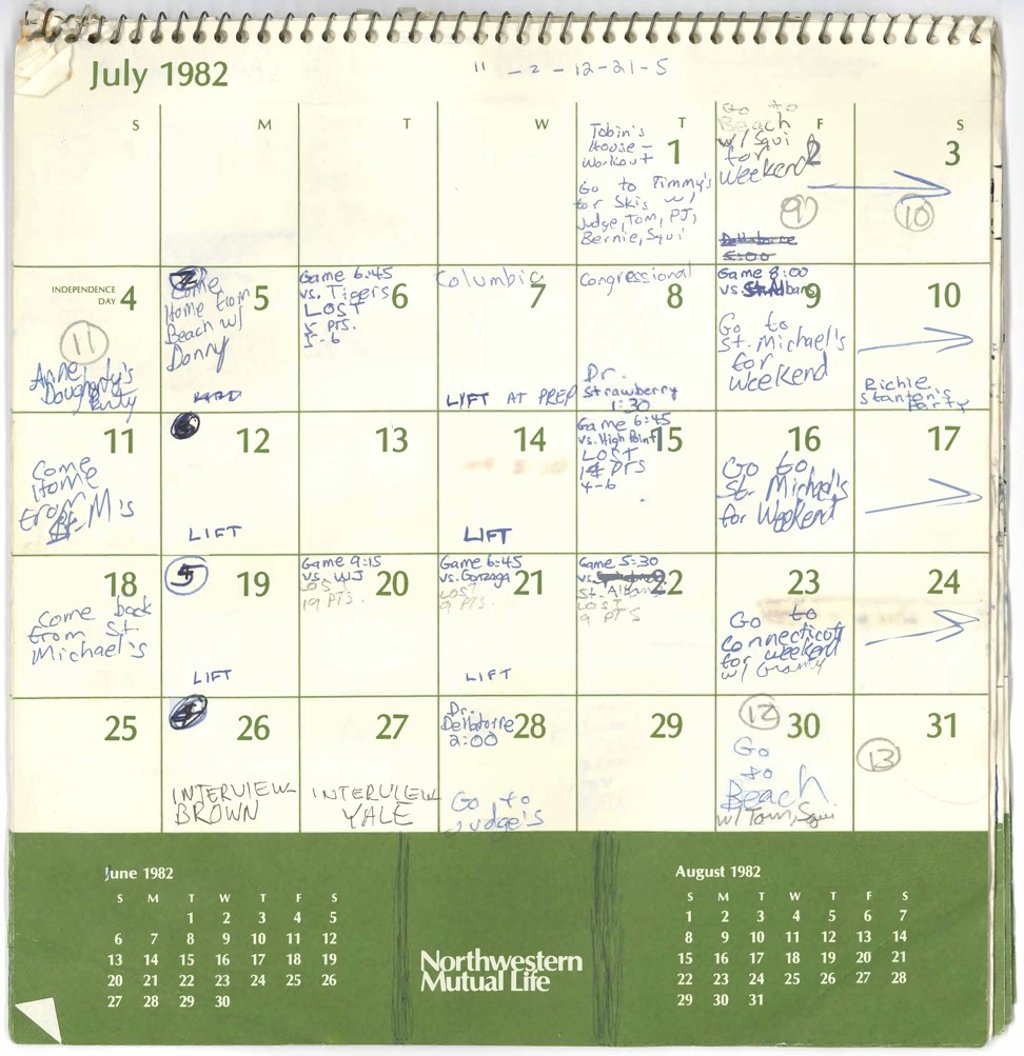 July 1982
" - 2 - 12-21-5
S M T W T F S
Tobin's
House -
Workout
1
Go to Timmy's
for Skis w/
Judge, Tom, PJ,
Bernie, Squi
Go to
Beach
w/ Squi
for
Weekend
2
9
5:00
3
10
INDEPENDENCE
DAY 4
11
Anne
Dougherty's
Party
5
Come
Home from
Beach w/
Donny
Game 6:45
vs. Tigers
LOST
5 PTS.
5-6
6
Columbia
7
LIFT AT PREP
Congressional
8
Dr.
Strawberry
1:30
Game 8:00
vs. St. Albans
9
Go to
St. Michael's
for
Weekend
10
Richie
Stanton's
Party
11
Come
Home
from
St. M's
12
LIFT
13
14
LIFT
Game 6:45
vs. High Point
LOST
14 PTS
4-6
15
16
Go to
St. Michael's
for Weekend
17
18
Come back
from St.
Michael's
5
19
LIFT
Game 9:15
vs. WJ
LOST
19 PTS.
20
Game 6:45
vs. Gonzaga
LOST
9 PTS.
21
LIFT
Game 5:30
vs.
St. Albans
LOST
9 PTS
22
23
Go to
Connecticutt
for weekend
w/ Grammy
24
25
4
26
INTERVIEW
BROWN
27
INTERVIEW
YALE
Dr.
Dellatorre
2:00
28
Go to
Judge's
29
12
30
Go
to
Beach
w/ Tom, Squi
13
31
June 1982
S M T W T F S
1 2 3 4 5
6 7 8 9 10 11 12
13 14 15 16 17 18 19
20 21 22 23 24 25 26
27 28 29 30
Northwestern
Mutual Life
August 1982
S M T W T F S
1 2 3 4 5 6 7
8 9 10 11 12 13 14
15 16 17 18 19 20 21
22 23 24 25 26 27 28
29 30 31